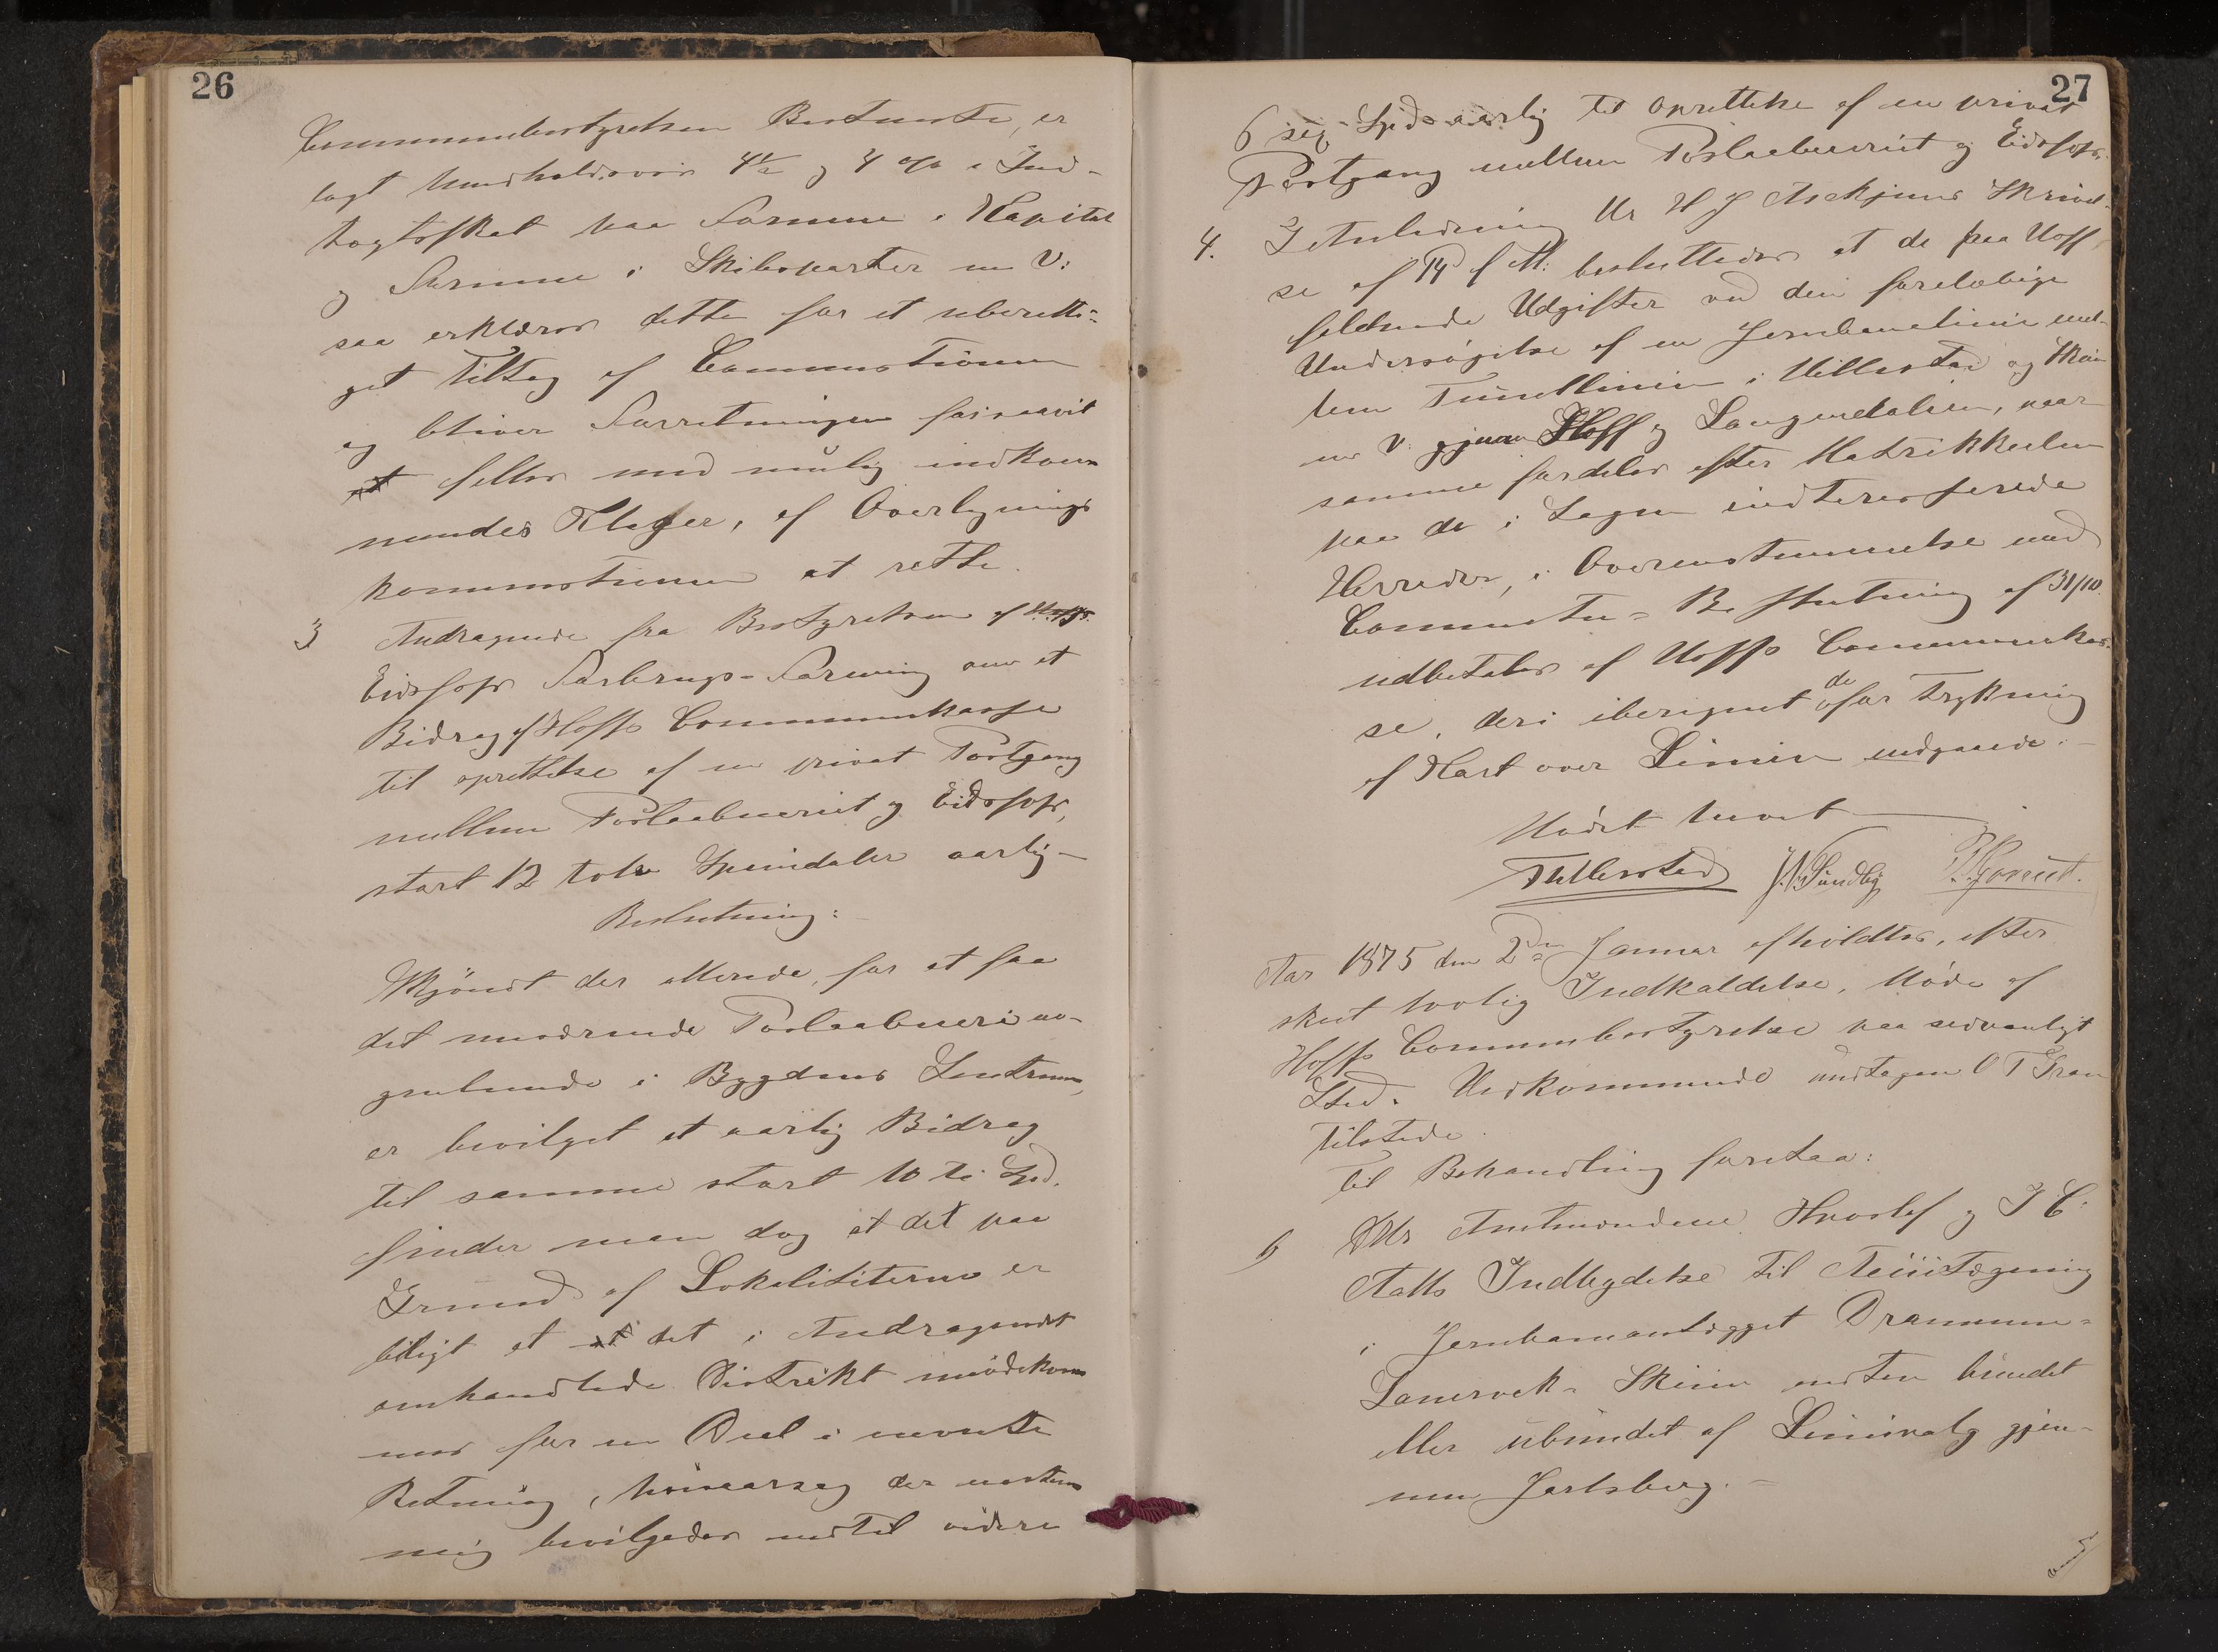 26
Communebestyrelsen Bestemte, er
lagt henholdsvis 4½ og 4 % i Ind-
tægtsskat paa Formue i Kapital
og Formue i Skibsparter m V:
saa erklæres dette for et uberetti-
get Tiltag af Commissionen
og bliver Forretningen forsaavit
at felles med mulig indkom
mendes Klager, af Overlignings
kommissionen at rette.
3 Andragende fra Bestyrelsen af
Eidsfoss Forbrugs-Forening om et
Bidrag af Hoffs Communekasse
til oprettelse af en privat Postgang
mellem Postaabneriet og Eidsfoss,
stort 12 tolv Speciedaler aarlig –
Beslutning:
Skjöndt der allerede, for at faa
det nuværende Postaabneri an-
grebende i Bygdens Centrum,
er bevilget et aarlig Bidrag
til samme stort 10 ti Spd.
finder man dog at det paa
Grund af Lokaliteterne er
billigt at det i Andragendet
omhandlede Distrikt imödekom
mes for en Deel i nevnte
Retning, hvisaarsag der enstem
mig bevilgedes indtil videre
27
6 sex Spd aarlig til oprettelse af en privat
Postgang mellem Postaabneriet og Eidsfoss.
4. I Anledning Hr H J Askjems Skrivel-
se af 14 f M: besluttedes at de paa Hoff
faldende Udgifter ved den forelöbige
Undersögelse af en Jernbanelinie mel-
lem Tunellinien i Hillestad og Skien
m V. gjennem Hoff og Laugendalen, naar
samme fordeles efter Matrikkulen
paa de i Sagen indteresserede
Herreder, i Overenstemmelse med
Committe-Beslutning af 31/10.
udbetales af Hoffs Communekas-
se, deri iberegnet de for Trykning
af Kart over Linien udgaaede. –
Mödet hevet
THillestad J.N.Sundby
Aar 1875 den 2den Januar afholdtes, efter
skeet lovlig Indkaldelse, Möde af
Hoffs Communebestyrelse paa sedvanligt
Sted. Vedkommende undtagen O T Gran
tilstede.
Til Behandling foretaa:
Hr Amtmændene Hvoslef og J C
Aalls Indbydelse til Actietegning
i Jernbaneanlægget Drammen-
Laurvek-Skien enten bundet
eller ubundet af Linievalg gjen-
nem Jarlsberg. –